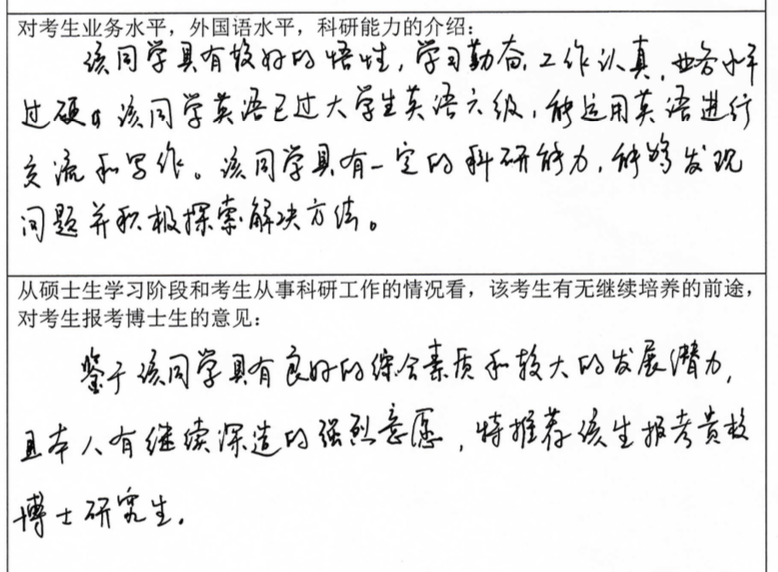 对考生业务水平，外国语水平，科研能力的介绍：
该同学具有较好的悟性，学习勤奋，工作认真，业务水平
过硬。该同学英语已过大学生英语六级，能运用英语进行
交流和写作。该同学具有一定的科研能力，能够发现
问题并积极探索解决方法。
从硕士生学习阶段和考生从事科研工作的情况看，该考生有无继续培养的前途，
对考生报考博士生的意见：
鉴于该同学具有良好的综合素质和较大的发展潜力，
且本人有继续深造的强烈意愿，特推荐该生报考贵校
博士研究生.